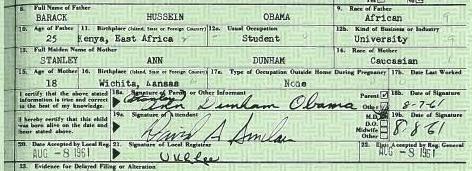 8. Full Name of Father 9. Race of Father
BARACK HUSSEIN OBAMA African
10. Age of Father 11. Birthplace (Island, State or Foreign Country) 12a. Usual Occupation 12b. Kind of Business or Industry
25 Kenya, East Africa Student University
13. Full Maiden Name of Mother 14. Race of Mother
STANLEY ANN DUNHAM Caucasian
15. Age of Mother 16. Birthplace (Island, State or Foreign Country) 17a. Type of Occupation Outside Home During Pregnancy 17b. Date Last Worked
18 Wichita, Kansas None
I certify that the above stated information is true and correct to the best of my knowledge.
18a. Signature of Parent or Other Informant Parent Other 18b. Date of Signature
(Stanley) Ann Dunham Obama 8-7-61
I hereby certify that this child was born alive on the date and hour stated above.
19a. Signature of Attendant M.D. D.O. Midwife Other 19b. Date of Signature
David A Sinclair 8-8-61
20. Date Accepted by Local Reg. 21. Signature of Local Registrar 22. Date Accepted by Reg. General
AUG -8 1961 U K L Lee AUG -8 1961
23. Evidence for Delayed Filing or Alteration